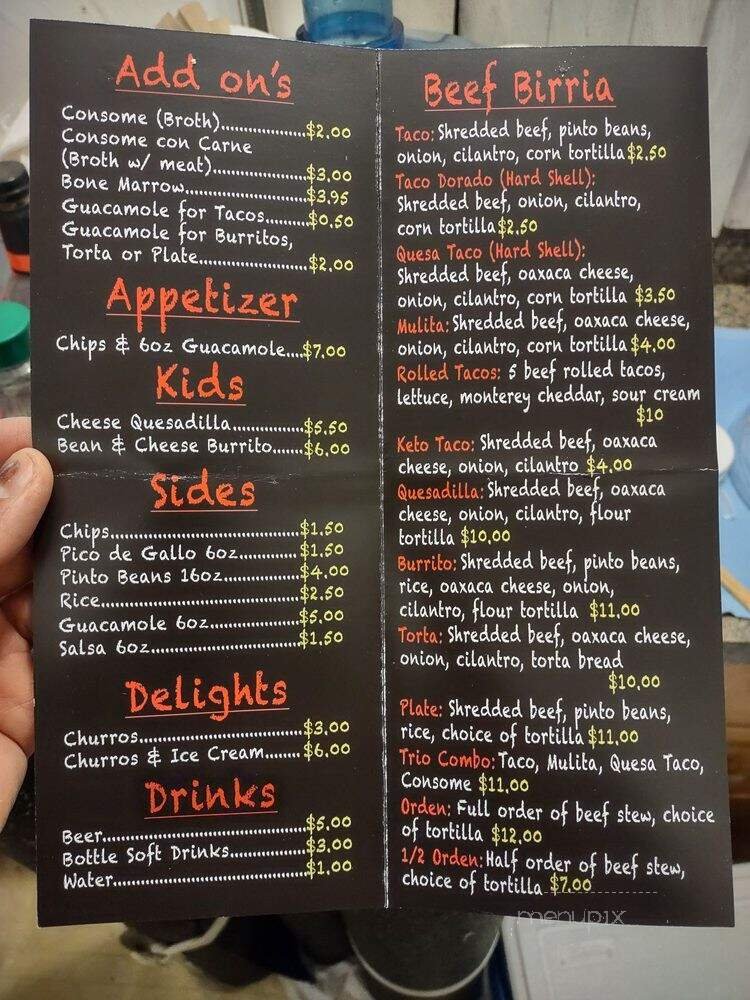 Add on's
Consome (Broth)..................$2.00
Consome con Carne
(Broth w/ meat)..................$3.00
Bone Marrow..................$3.95
Guacamole for Tacos..................$0.50
Guacamole for Burritos,
Torta or Plate..................$2.00
Appetizer
Chips & 6oz Guacamole...$7.00
Kids
Cheese Quesadilla..................$5.50
Bean & Cheese Burrito......$6.00
Sides
Chips..................$1.50
Pico de Gallo 6oz..................$1.50
Pinto Beans 16oz..................$4.00
Rice..................$2.50
Guacamole 6oz..................$5.00
Salsa 6oz..................$1.50
Delights
Churros..................$3.00
Churros & Ice Cream......$6.00
Drinks
Beer..................$5.00
Bottle Soft Drinks..................$3.00
Water..................$1.00
Beef Birria
Taco: Shredded beef, pinto beans,
onion, cilantro, corn tortilla $2.50
Taco Dorado (Hard Shell):
Shredded beef, onion, cilantro,
corn tortilla $2.50
Quesa Taco (Hard Shell):
Shredded beef, oaxaca cheese,
onion, cilantro, corn tortilla $3.50
Mulita: Shredded beef, oaxaca cheese,
onion, cilantro, corn tortilla $4.00
Rolled Tacos: 5 beef rolled tacos,
lettuce, monterey cheddar, sour cream
$10
Keto Taco: Shredded beef, oaxaca
cheese, onion, cilantro $4.00
Quesadilla: Shredded beef, oaxaca
cheese, onion, cilantro, flour
tortilla $10.00
Burrito: Shredded beef, pinto beans,
rice, oaxaca cheese, onion,
cilantro, flour tortilla $11.00
Torta: Shredded beef, oaxaca cheese,
onion, cilantro, torta bread
$10.00
Plate: Shredded beef, pinto beans,
rice, choice of tortilla $11.00
Trio Combo: Taco, Mulita, Quesa Taco,
Consome $11.00
Orden: Full order of beef stew, choice
of tortilla $12.00
1/2 Orden: Half order of beef stew,
choice of tortilla $7.00
menupix